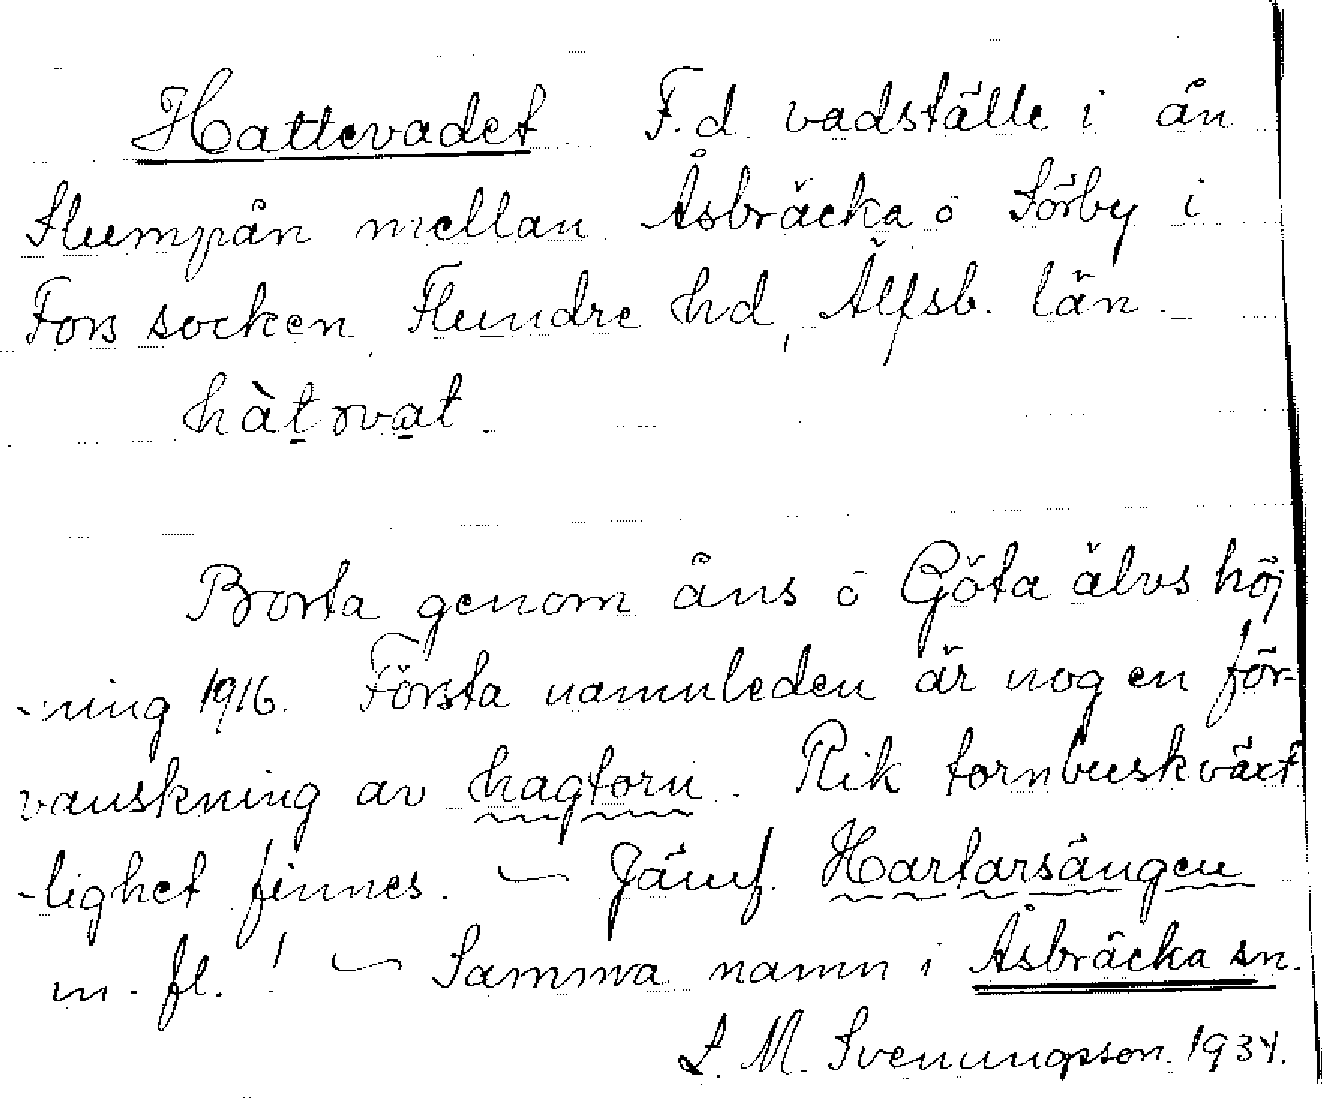 Hattevadet F.d. vadställe i ån
Slumpån mellan Åsbräcka o Sörby i
Fors socken, Flundre hd, Älfsb. län.
hàtovat.
Borta genom åns o Göta älvs höj
-ning 1916. Första namnleden är nog en för-
vanskning av hagtorn. Rik tornbuskväxt
-lighet finnes. — Jämf. Hartarsängen
m. fl.! — Samma namn i Åsbräcka sn.
L. M. Svenungsson. 1934.